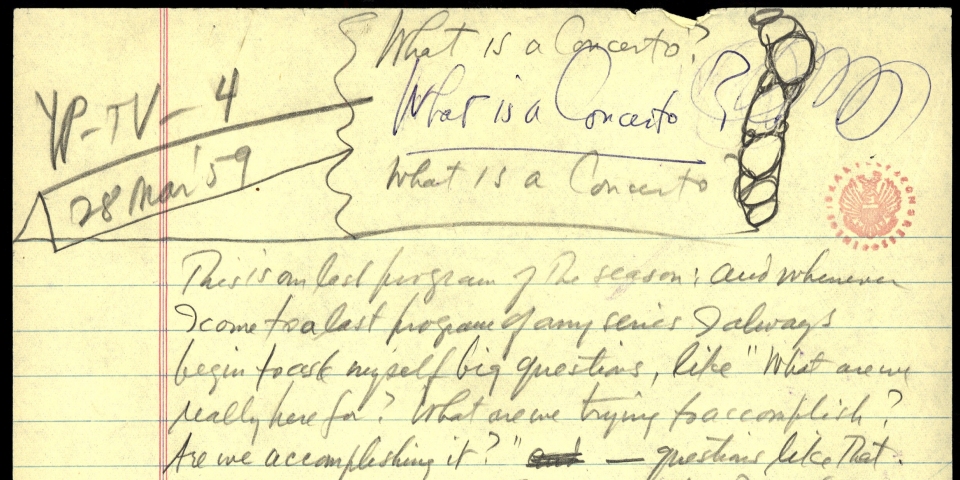 What is a Concerto?
YP-TV-4
What is a Concerto ?
28 Mar '59
What is a Concerto
This is our last program of the season; and whenever
I come to a last program of any series I always
begin to ask myself big questions, like "What are we
really here for? What are we trying to accomplish?
Are we accomplishing it?" — questions like that.